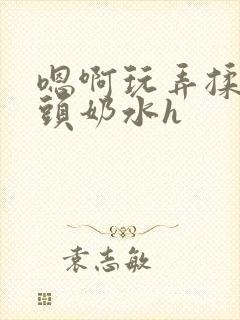 嗯啊玩弄揉
頭奶水h
袁志敏